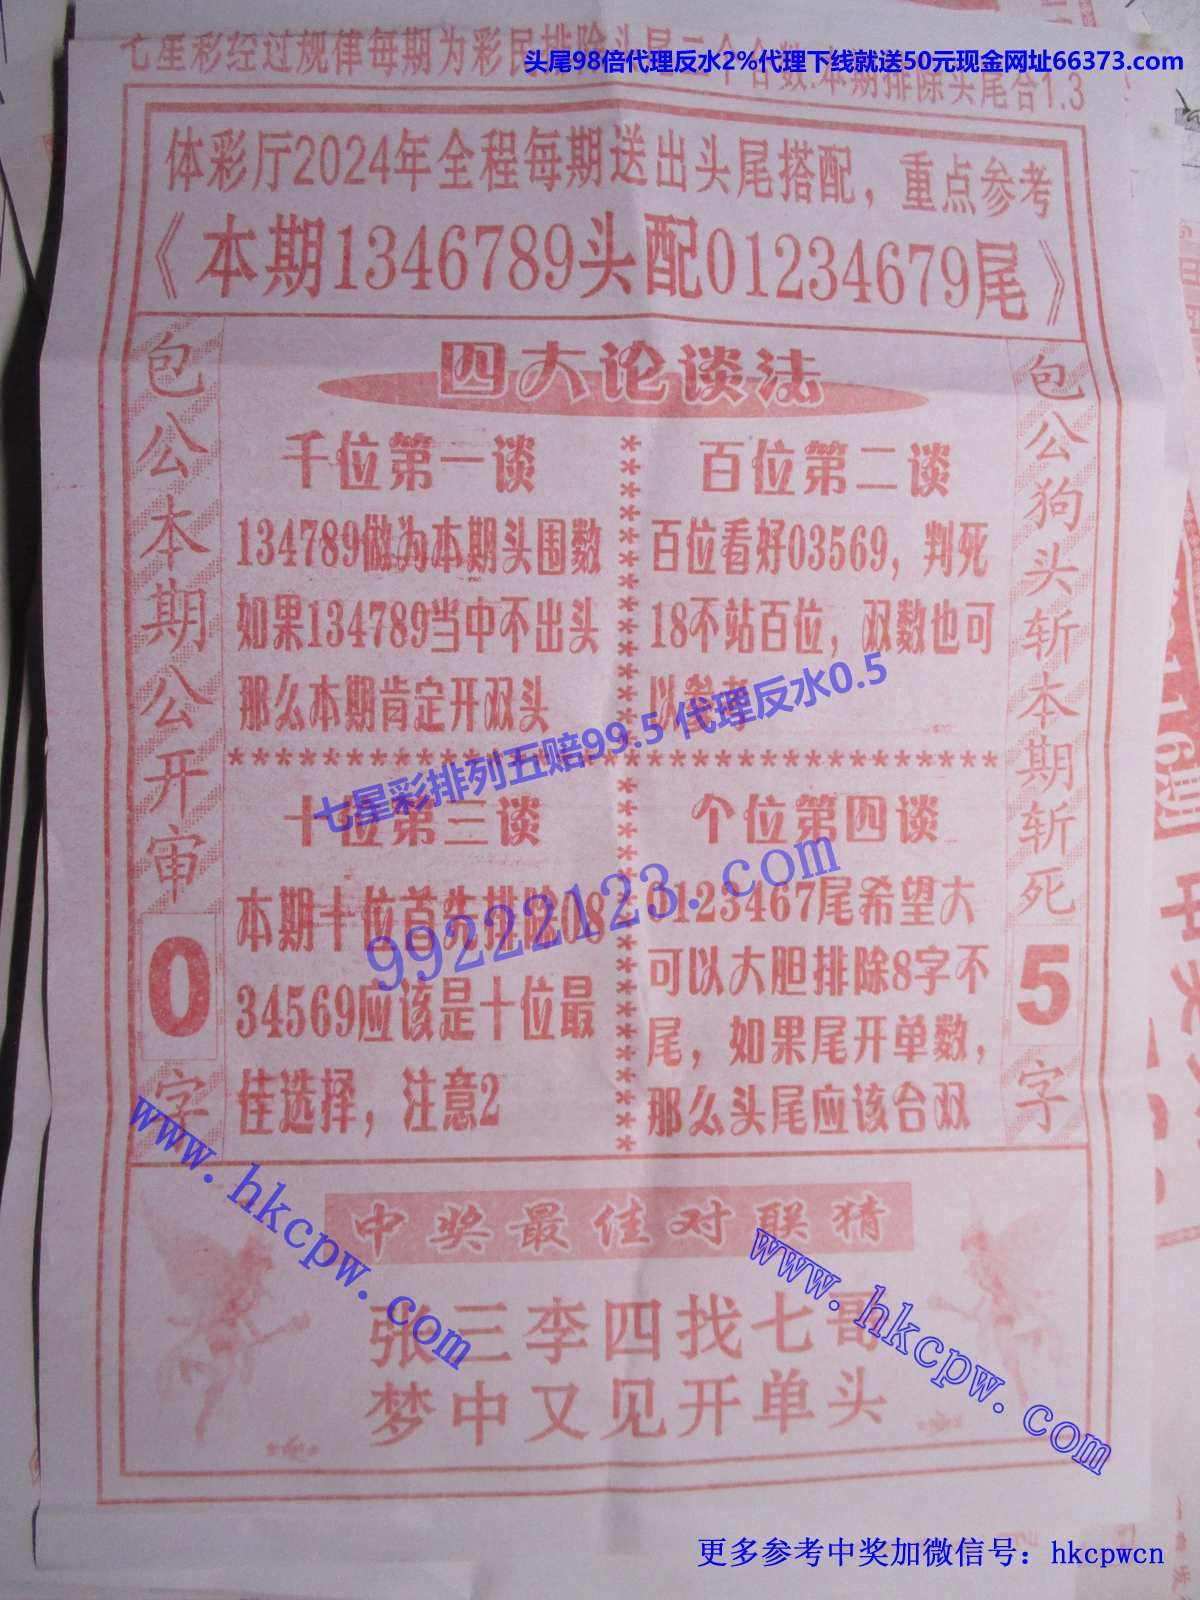 头尾98倍代理反水2%代理下线就送50元现金网址66373.com
七星彩经过规律每期为彩民排除头尾二个合数.本期排除头尾合1.3
体彩厅2024年全程每期送出头尾搭配，重点参考
《本期1346789头配01234679尾》
包公本期公开审0字
包公狗头斩本期斩死5字
四大论谈法
千位第一谈
134789做为本期头围数
如果134789当中不出头
那么本期肯定开双头
百位第二谈
百位看好03569，判死
18不站百位，双数也可
以参考
七星彩排列五赔99.5 代理反水0.5
十位第三谈
本期十位首先排除08
34569应该是十位最
佳选择，注意2
个位第四谈
0123467尾希望大
可以大胆排除8字不
尾，如果尾开单数，
那么头尾应该合双
99222123.com
www.hkcpw.com
www.hkcpw.com
中奖最佳对联猜
张三李四找七哥
梦中又见开单头
更多参考中奖加微信号：hkcpwcn